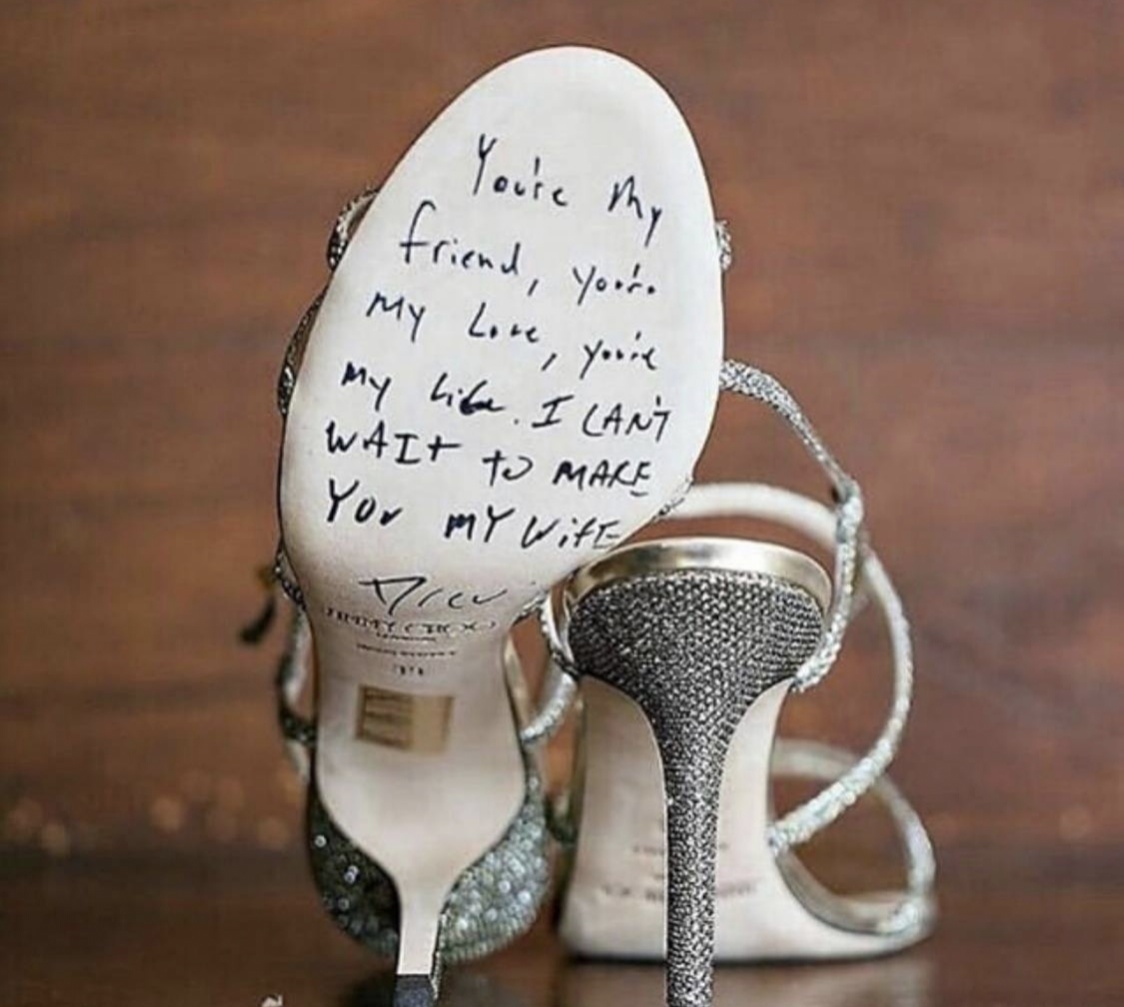 You're My
friend, you're
My Love, you're
My Life. I CAN'T
WAIT to MAKE
YOU MY WifE
Drew
JIMMY CHOO